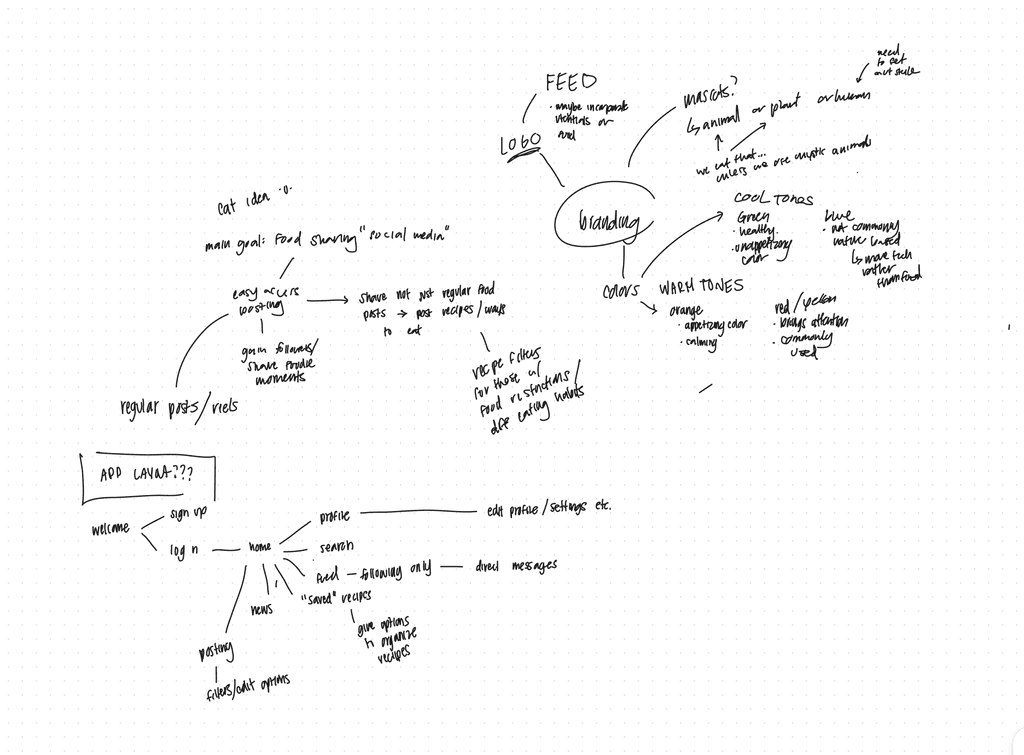 FEED
• maybe incorporate
utensils or
LOGO
mascots?
↳ animal or plant or human
need
to get
we eat that...
unless we use mystic animals
branding
COOL TONES
Green
• healthy
• unappetizing
color
blue
• not commonly
nature based
↳ more tech
rather
than food
colors
WARM TONES
orange
• appetizing color
• calming
red/yellow
• brings attention
• commonly
used
main goal: food sharing "social media"
easy access
posting
gain followers/
share foodie
moments
regular posts/reels
share not just regular food
posts → post recipes/ways
to eat
recipe filters
for those w/
food restrictions/
diff eating habits
APP LAYOUT???
welcome
sign up
log n
home
profile
edit profile/settings etc.
search
feed – following only
direct messages
"saved" recipes
give options
to organize
recipes
news
posting
filters/edit options